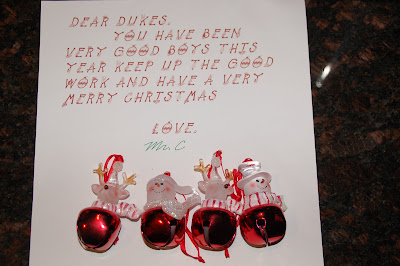 DEAR DUKES,
YOU HAVE BEEN
VERY GOOD BOYS THIS
YEAR KEEP UP THE GOOD
WORK AND HAVE A VERY
MERRY CHRISTMAS
LOVE,
Mr. C